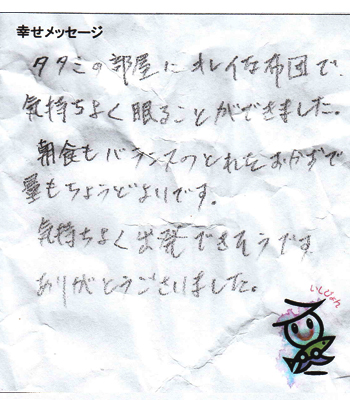 幸せメッセージ
タタミの部屋にキレイな布団で、
気持ちよく眠ることができました。
朝食もバランスのとれたおかずで
量もちょうどよいです。
気持ちよく出発できそうです
ありがとうございました。